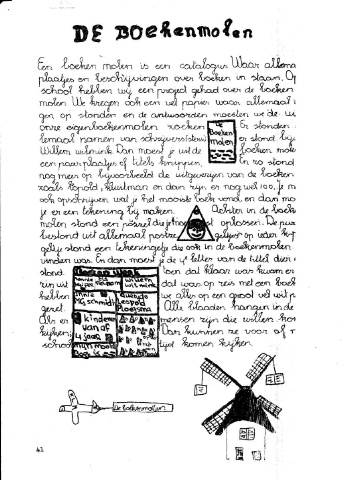 DE BOEKENMOLEN
Een boeken molen is een catalogus Waar allema
plaatjes en beschrijvingen over boeken in staan. Op
school hebben wij een project gehad over de boeken
molen. We kregen ook een vel papier waar allemaal
gen op stonden en de antwoorden moesten we de
onze eigen boekenmolen zoeken Er stonden
lemaal namen van schrijvers er stond bij
Willem wilmink Dan moest je uit de boeken mole
een paar plaatjes of titels knippen. En zo stond
nog meer op bijvoorbeeld de uitgeverijen van de boeken
zoals leopold, kluitman en dan zijn er nog wel 100. Je m
ook opschrijven wat je het mooiste boek vond, en dan mo
je er een tekening bij maken. Achter in de boek
molen stond een puzzel die je moest oplossen. De puz
bestond uit allemaal postze op ieder
geltje stond een tekeningetje die ook in de boekenmolen
vinden was. En dan moest je de letter van de titel die
stond. ben dat klaar was kwam er
rin wit dat was op reis met een boek
hebben we alles op een groot vel wit p
geret. Alle bladen hangen in de
Als er mensen zijn die willen ko
Dan kunnen ze voor of
school tijd komen kijken.
De
Boeken
molen
Boeken week
willem
wilmink
annie
m g
schmidt
leopold
Ploegsma
kinderen
vanaf
4 jaar
mijn mooiste
Boek is
De boekenmolen
42